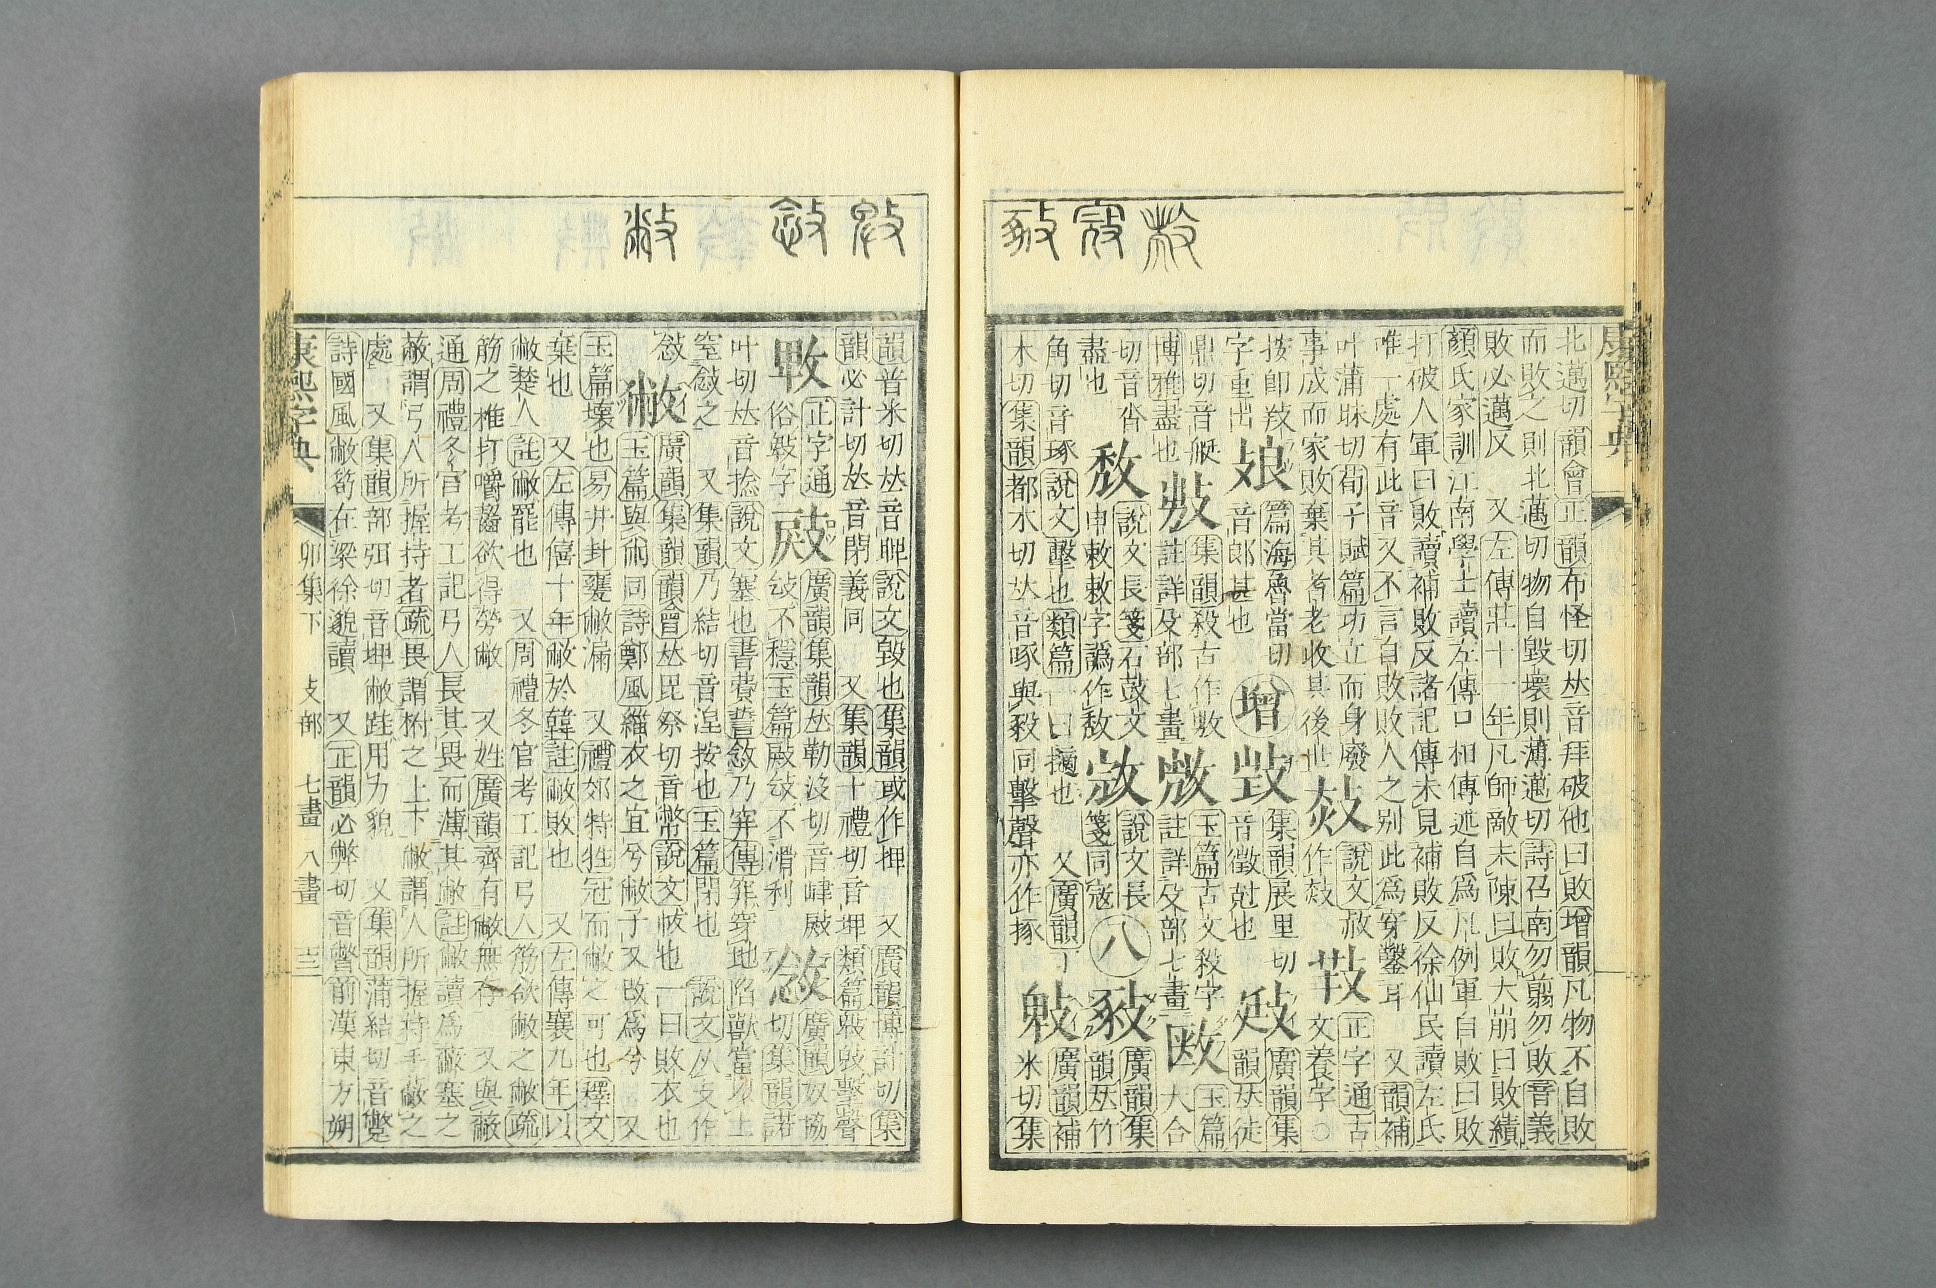 北邁切韻會正韻布怪切𠀤音拜破他曰敗增韻凡物不自敗
而敗之則北邁切物自毀壞則薄邁切詩召南勿翦勿敗音義
敗必邁反 又左傳莊十一年凡師敵未陳曰敗大崩曰敗績
顏氏家訓江南學士讀左傳口相傳述自爲凡例軍自敗曰敗
打破人軍曰敗讀補敗反諸記傳未見補敗反徐仙民讀左氏
唯一處有此音又不言自敗敗人之别此爲穿鑿耳 又韻補
叶蒲昧切荀子賦篇功立而身廢
事成而家敗棄其耆老收其後世
說文放
作敖
正字通古
文養字○
按卽羖
字重出
篇海魯當切
音郎甚也
增
集韻展里切
音徵㲄也
廣韻集
韻𠀤徒
鼎切音艇
集韻殺古作
玉篇古文殺字
玉篇
大合
博雅盡也
註詳及部七畫
註詳殳部七畫
切音沓
盡也
敄
說文長箋石鼓文
申敕敕字譌作敄
說文長
箋同寇
八
廣韻集
韻𠀤竹
角切音琢說文擊也類篇一曰擿也 又廣韻丁
木切集韻都木切𠀤音啄與豛同擊聲亦作㧻
廣韻補
米切集
韻普米切𠀤音睥說文毀也集韻或作捭 又廣韻博計切集
韻必計切𠀤音閉義同 又集韻十禮切音埤類篇毄也擊聲
正字通
俗毅字
廣韻集韻𠀤勒沒切音㟳
不穩玉篇 不滑利
敜
廣韻奴協
切集韻諾
叶切𠀤音捻說文塞也書費誓敜乃穽傳穽穿地陷獸當以土
窒敜之 又集韻乃結切音涅按也玉篇閉也 說文从攴作
敜
敝
廣韻集韻韻會𠀤毘祭切音幣說文帗也一曰敗衣也
玉篇與㡀同詩鄭風緇衣之宜兮敝予又改爲兮 又
玉篇壞也易井卦甕敝漏 又禮郊特牲冠而敝之可也釋文
棄也 又左傳僖十年敝於韓註敝敗也 又左傳襄九年以
敝楚人註敝罷也 又周禮冬官考工記弓人筋欲敝之敝疏
筋之椎打嚼齧欲得勞敝 又姓廣韻齊有敝無存 又與蔽
通周禮冬官考工記弓人長其畏而薄其敝註敝讀爲蔽塞之
蔽謂弓人所握持者疏畏謂柎之上下敝謂人所握持手蔽之
處 又集韻部弭切音埤敝跬用力貌 又集韻蒲結切音蹩
詩國風敝笱在梁徐邈讀 又正韻必弊切音㡀前漢東方朔
康熙字典 卯集下 攴部 七畫 八畫